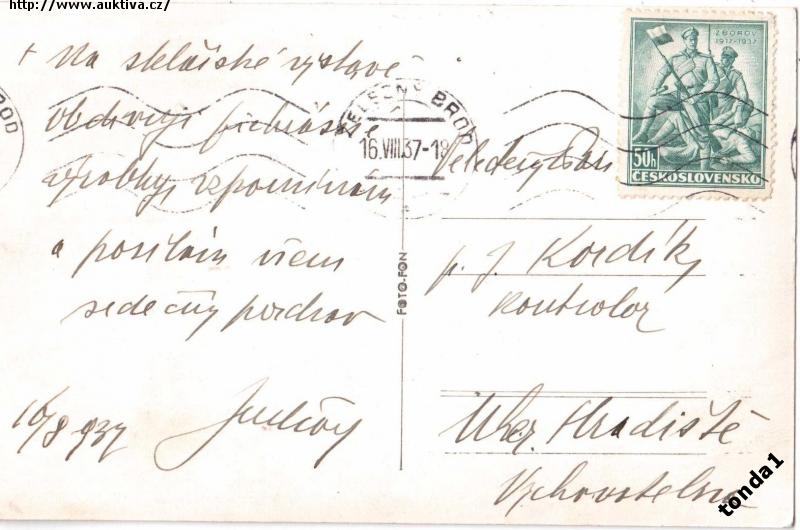 http://www.auktiva.cz/
+ Na sklářské výstavě
obdivuji
výrobky, vzpomínám
a posílám všem
srdečný pozdrav
16/8 937
ŽELEZNÝ BROD
16.VIII.37-18
ZBOROV
1917-1937
50h
ČESKOSLOVENSKO
FOTO-FON
Veledctěný Pan
p. J. Kordík,
kontrolor
Uher. Hradiště
Vychovatelna
tonda1